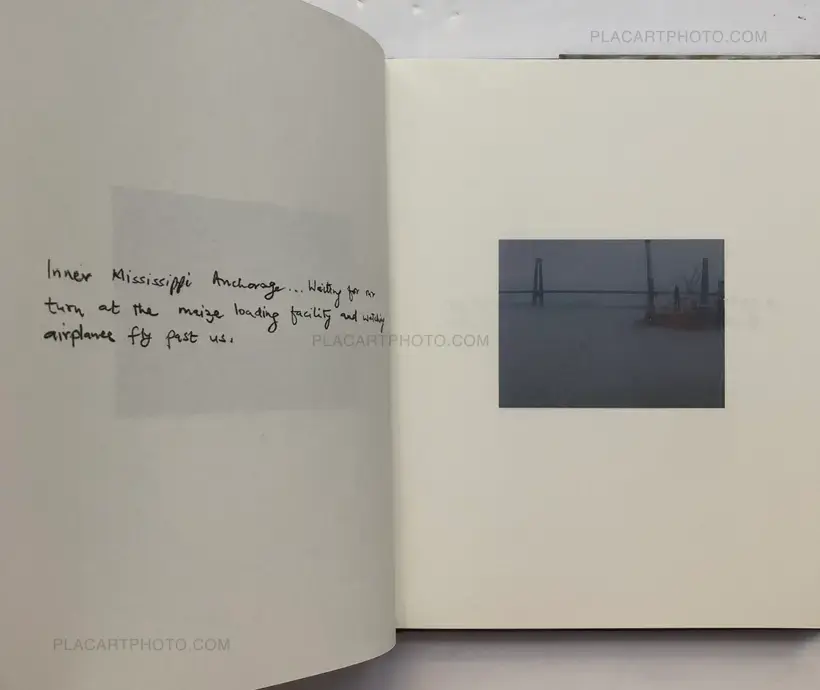 PLACARTPHOTO.COM
Inner Mississippi Anchorage... Waiting for our
turn at the maize loading facility and watching
airplanes fly past us.
PLACARTPHOTO.COM
PLACARTPHOTO.COM